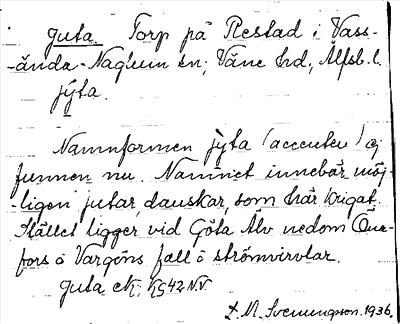 Guta. Torp på Restad i Vass-
-ända-Naglum sn; Väne hd, Älfsb. l.
jy̆ta.
Namnformen jy̆ta (accenten) ej
funnen nu. Namnet innebär möj-
-ligen jutar, danskar, som här krigat.
Stället ligger vid Göta Älv nedom Öna-
fors o Vargöns fall o strömvirvlar.
Guta ck. KG42 NV
M. Svenungson. 1936.